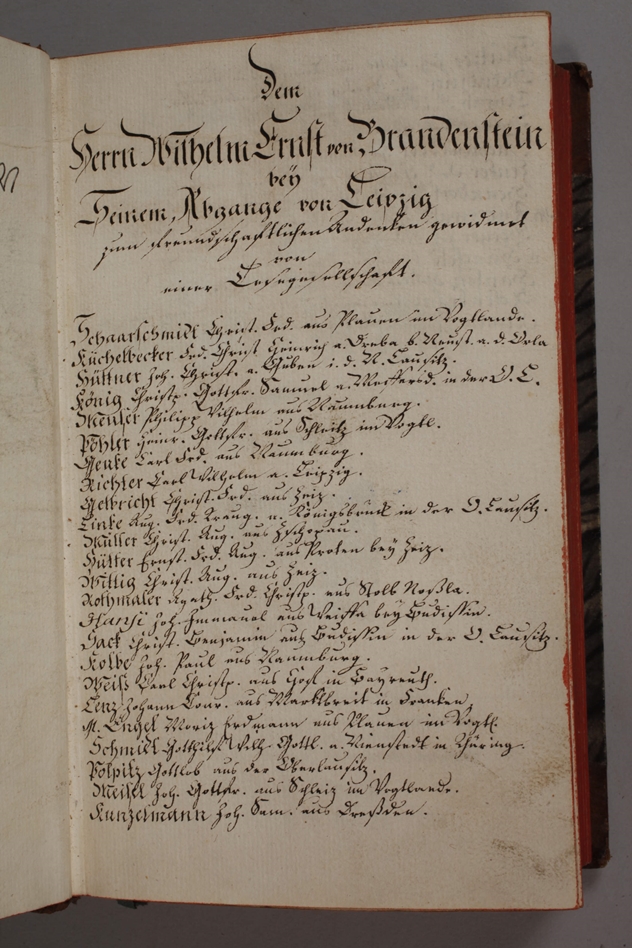 Dem
Herrn Wilhelm Ernst von Brandenstein
bey
Seinem Abgange von Leipzig
zum freundschaftlichen Andenken gewidmet
von
einer Lesegesellschaft.
Schaarschmidt Christ. Frd. aus Plauen im Vogtlande.
Küchelbecker Frd. Christ Heinrich a. Dreba b. Neust. a. d. Orla
Hüttner Joh. Christ. a. Guben i. d. N. Lausitz.
König Christp. Gottfr. Samuel a. in der O. L.
Philipp Wilhelm aus Naumburg.
Heinr. Gottfr. aus Schleitz im Vogtl.
Carl Frd. aus Naumburg.
Richter Carl Wilhelm a. Leipzig.
Gelbricht Christ. Frd. aus Zeiz.
Linke Aug. Frd. Traug. a. Königsbrück in der O. Lausitz.
Müller Christ. Aug. aus Zschopau.
Hütter Ernst. Frd. Aug. aus Proten bey Zeiz.
Wittig Christ. Aug. aus Zeiz.
Rothmaler Frd. Christp. aus Stolb Roßla.
Joh. Immanuel aus Weissa bey Budissin.
Sack Christ. Benjamin aus Budissin in der O. Lausitz.
Kolbe Joh. Paul aus Naumburg.
Weiß Carl Christp. aus Hof in Bayreuth.
Lenz Johann Conr. aus Marktbreit in Franken.
M. Engel Moriz Erdmann aus Plauen im Vogtl.
Schmidt Gotthilf Wilh. Gottl. a. Nienstedt in Thüring.
Pölpitz Gottlob aus der Oberlausitz.
Meisel Joh. Gottfr. aus Schleiz im Vogtlande.
Kunzelmann Joh. Sam. aus Dresden.